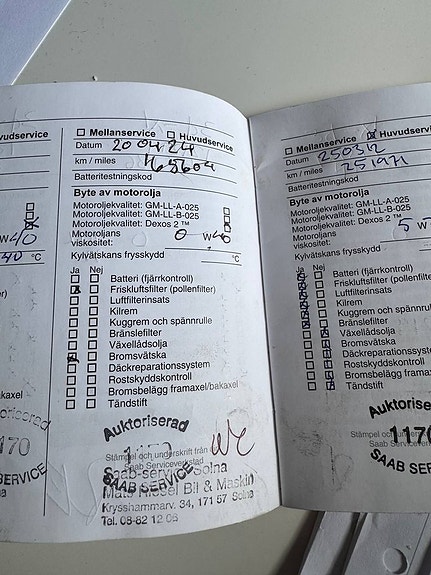 udservice
W40
40 °C
akaxel
Auktoriserad
170
SERVICE
Mellanservice Huvudservice
Datum 20 04 24
km / miles
Batteritestningskod
Byte av motorolja
Motoroljekvalitet: GM-LL-A-025
Motoroljekvalitet: GM-LL-B-025
Motoroljekvalitet: Dexos 2 ™
Motoroljans viskositet: 0 W40
Kylvätskans frysskydd °C
Ja Nej
Batteri (fjärrkontroll)
Friskluftsfilter (pollenfilter)
Luftfilterinsats
Kilrem
Kuggrem och spännrulle
Bränslefilter
Växellådsolja
Bromsvätska
Däckreparationssystem
Rostskyddskontroll
Bromsbelägg framaxel/bakaxel
Tändstift
Auktoriserad
Stämpel och underskrift från
Saab Serviceverkstad
Saab-service Solna
SAAB SERVICE
Mats Riesel Bil & Maskin
Krysshammarv. 34, 171 57 Solna
Tel. 08-82 12 06
Mellanservice Huvudservice
Datum 250312
km / miles 251971
Batteritestningskod
Byte av motorolja
Motoroljekvalitet: GM-LL-A-025
Motoroljekvalitet: GM-LL-B-025
Motoroljekvalitet: Dexos 2 ™
Motoroljans viskositet: 5 W
Kylvätskans frysskydd
Ja Nej
Batteri (fjärrkontroll)
Friskluftsfilter (pollenfilter)
Luftfilterinsats
Kilrem
Kuggrem och spännrulle
Bränslefilter
Växellådsolja
Bromsvätska
Däckreparationssystem
Rostskyddskontroll
Bromsbelägg framaxel
Tändstift
Auktoriser
Stämpel och
1170
SAAB SERV